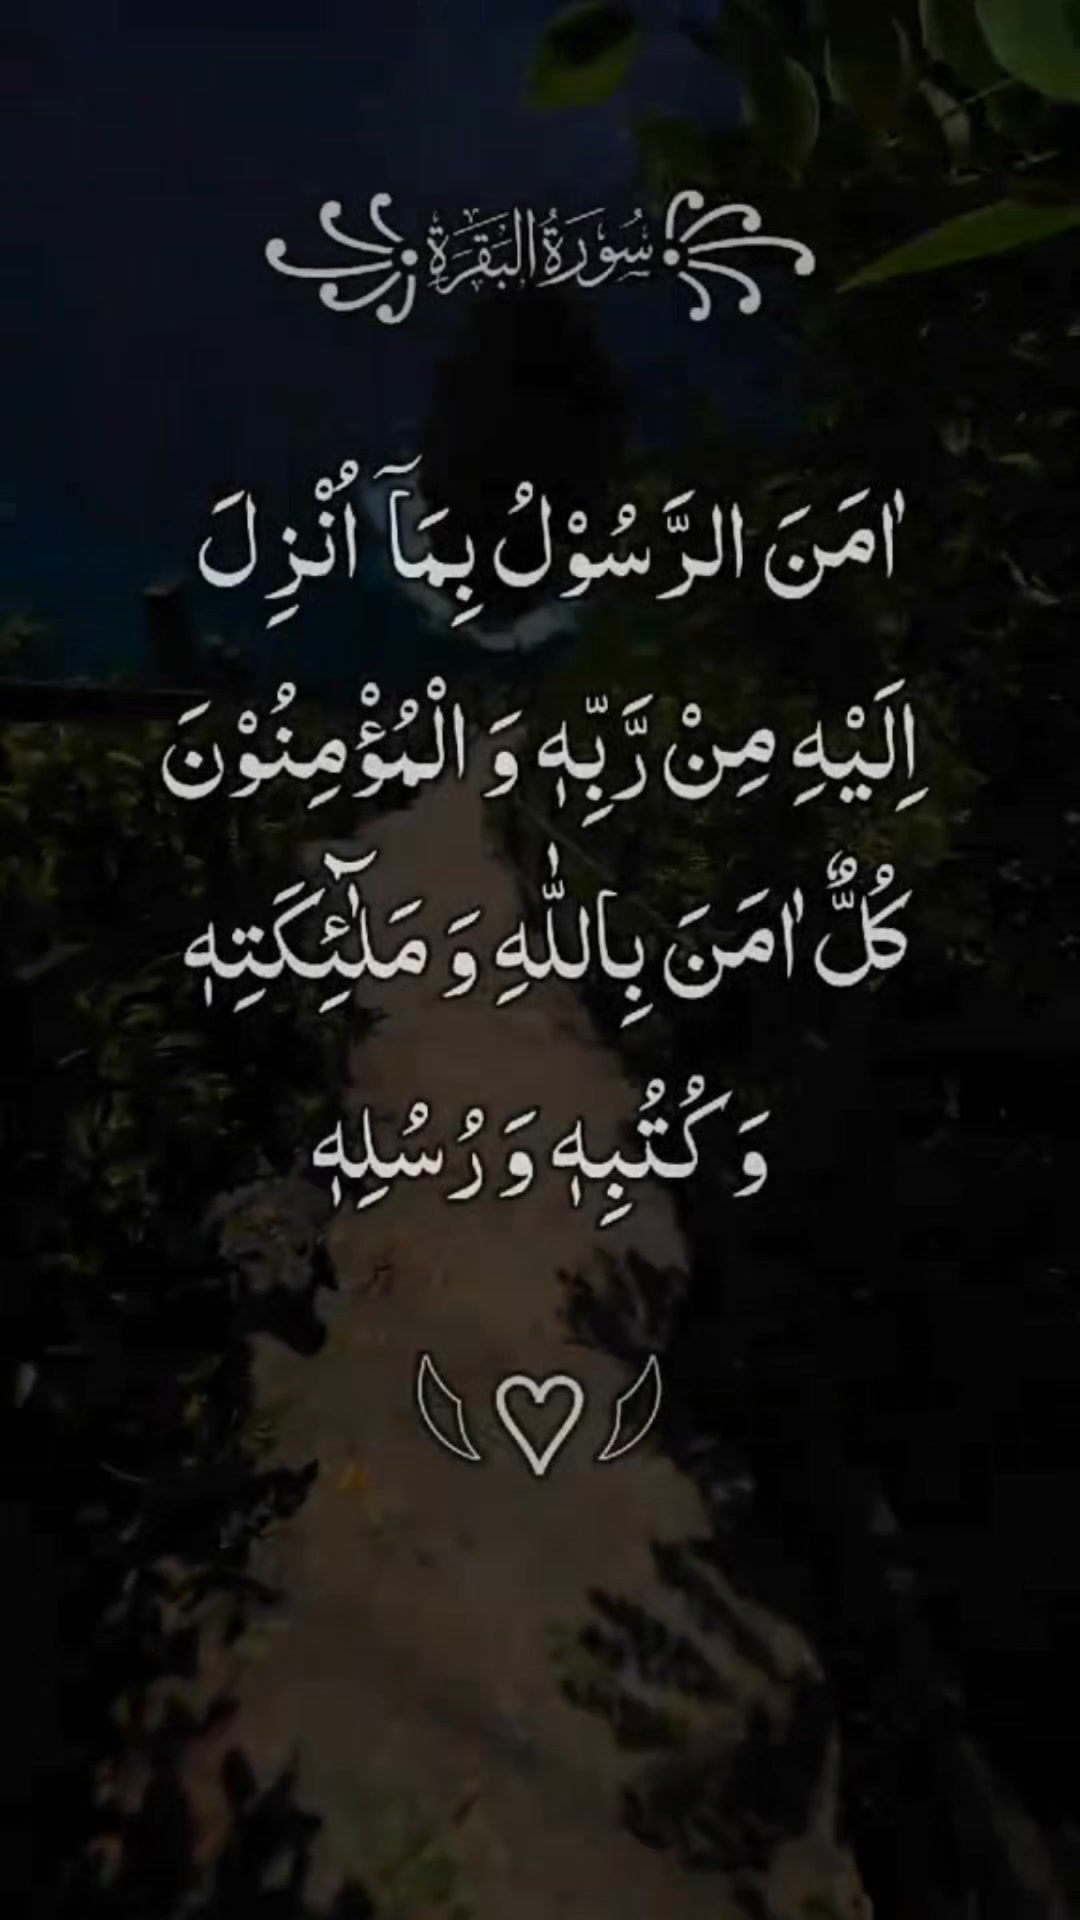 سُوْرَةُ الْبَقَرَةِ
اٰمَنَ الرَّسُوْلُ بِمَاۤ اُنْزِلَ
اِلَیْهِ مِنْ رَّبِّهٖ وَ الْمُؤْمِنُوْنَ
كُلٌّ اٰمَنَ بِاللّٰهِ وَ مَلٰٓئِكَتِهٖ
وَ كُتُبِهٖ وَ رُسُلِهٖ